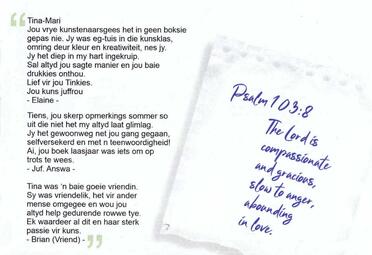 Tina-Mari
Jou vrye kunstenaarsgees het in geen boksie
gepas nie. Jy was eg-tuis in die kunsklas,
omring deur kleur en kreatiwiteit, nes jy.
Jy het diep in my hart ingekruip.
Sal altyd jou sagte manier en jou baie
drukkies onthou.
Lief vir jou Tinkies.
Jou kuns juffrou
- Elaine -
Tiens, jou skerp opmerkings sommer so
uit die niet het my altyd laat glimlag.
Jy het gewoonweg net jou gang gegaan,
selfversekerd en met n teenwoordigheid!
Ai, jou boek laasjaar was iets om op
trots te wees.
- Juf. Answa -
Tina was 'n baie goeie vriendin.
Sy was vriendelik, het vir ander
mense omgegee en wou jou
altyd help gedurende rowwe tye.
Ek waardeer al dit en haar sterk
passie vir kuns.
- Brian (Vriend) -
Psalm 103:8
The Lord is
compassionate
and gracious,
slow to anger,
abounding
in love.